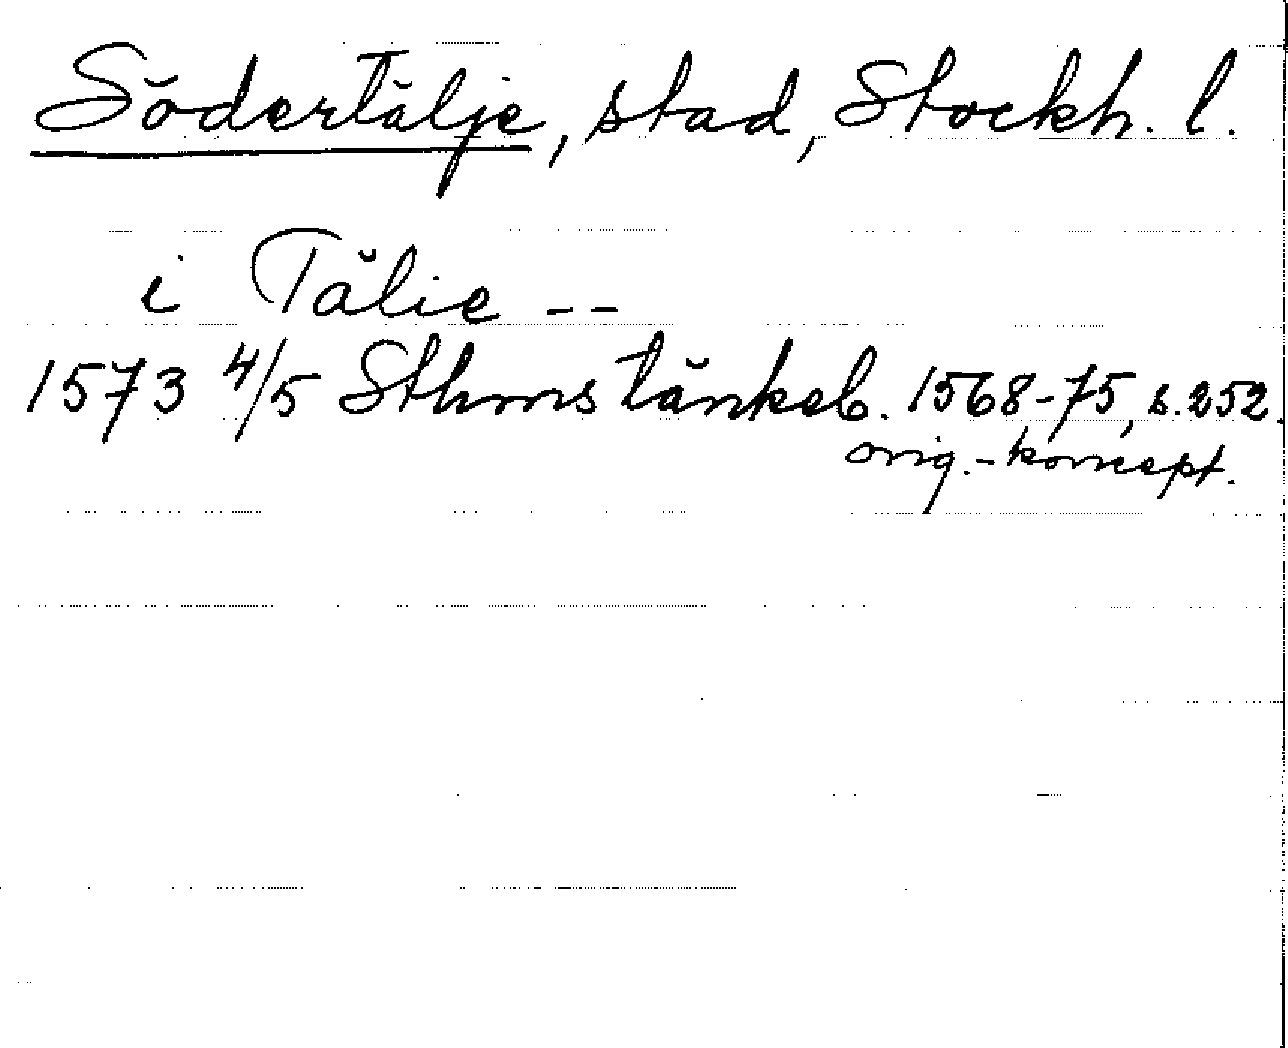 Södertälje, stad, Stockh. l.
i Tälie --
1573 4/5 Sthms tänkeb. 1568-75, s. 252.
orig.-koncept.